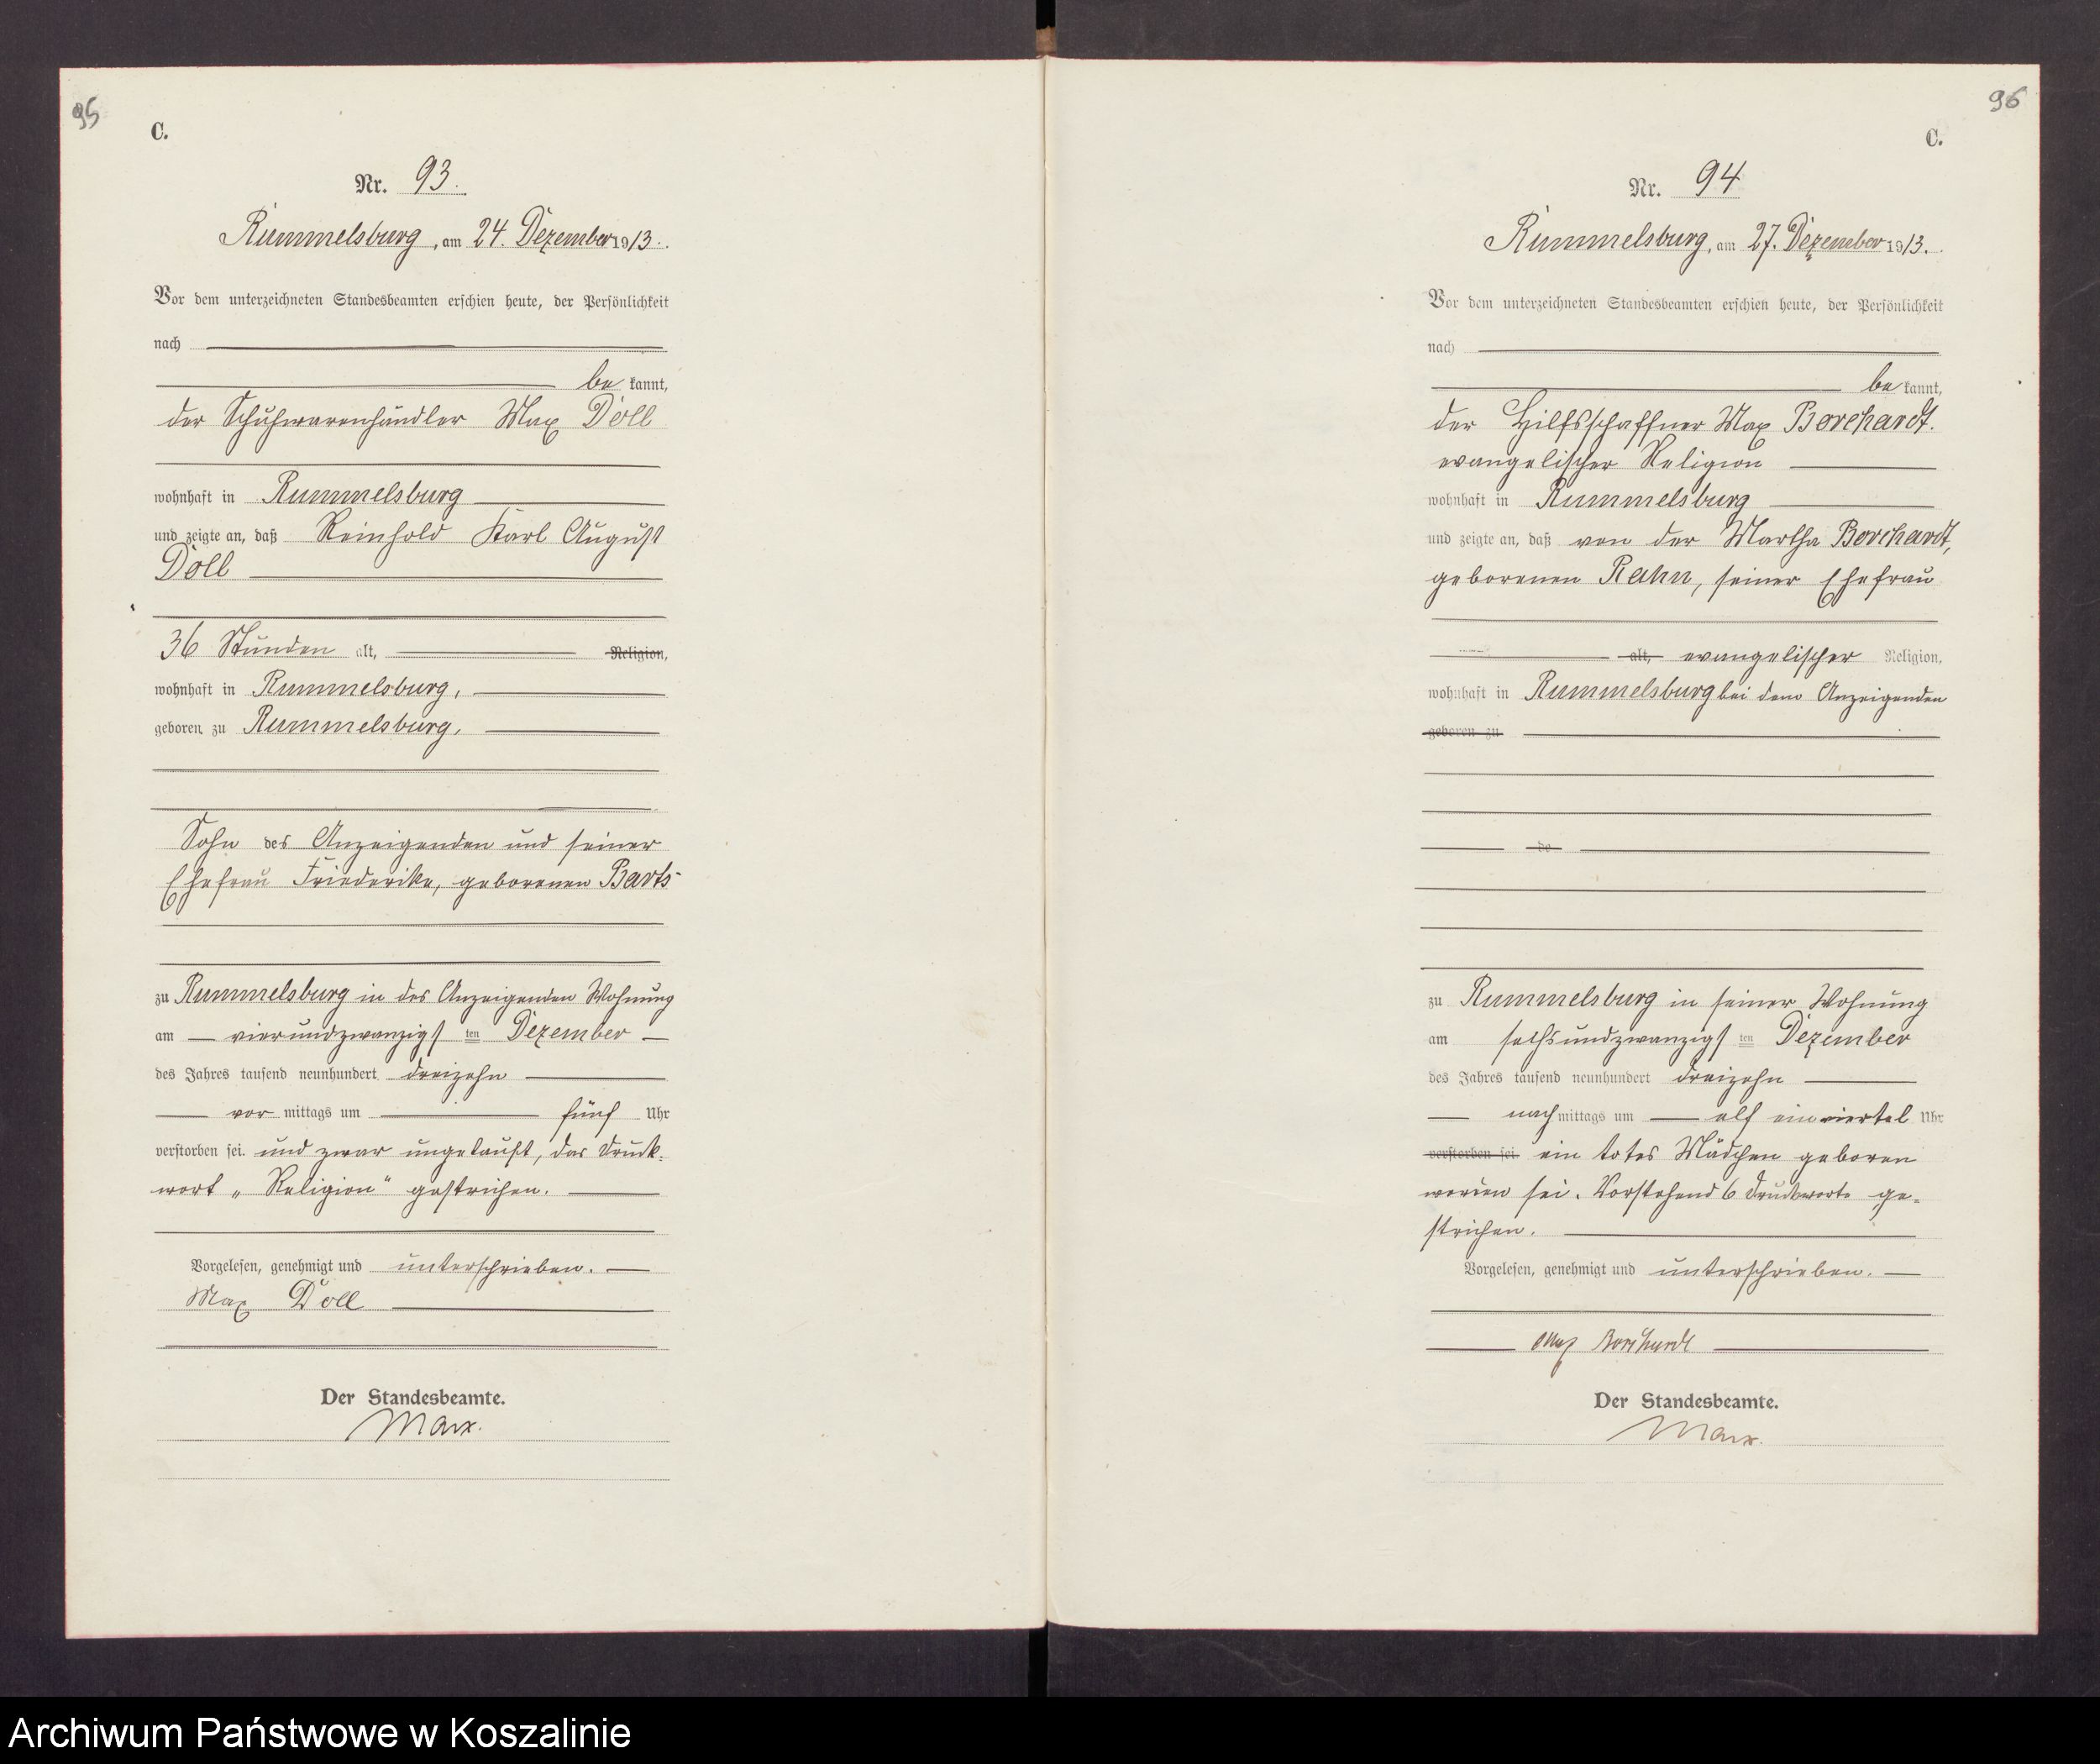 95
C.
Nr. 93.
Rummelsburg, am 24. Dezember 1913.
Vor dem unterzeichneten Standesbeamten erschien heute, der Persönlichkeit
nach
be kannt,
der Schuhwarenhändler Max Doll
wohnhaft in Rummelsburg
und zeigte an, daß Reinhold Karl August
Doll
36 Stunden alt, Religion,
wohnhaft in Rummelsburg,
geboren zu Rummelsburg,
Sohn des Anzeigenden und seiner
Ehefrau Friederike, geborenen Barts
zu Rummelsburg in des Anzeigenden Wohnung
am vierundzwanzigsten Dezember
des Jahres tausend neunhundert dreizehn
vor mittags um fünf Uhr
verstorben sei. und zwar ungetauft, das Druck-
wort „Religion“ gestrichen.
Vorgelesen, genehmigt und unterschrieben.
Max Doll
Der Standesbeamte.
Marx.
96
C.
Nr. 94
Rummelsburg, am 27. Dezember 1913.
Vor dem unterzeichneten Standesbeamten erschien heute, der Persönlichkeit
nach
be kannt,
der Hilfsschaffner Max Borchardt.
evangelischer Religion
wohnhaft in Rummelsburg
und zeigte an, daß von der Martha Borchardt,
geborenen Rahn, seiner Ehefrau
alt, evangelischer Religion,
wohnhaft in Rummelsburg bei dem Anzeigenden
geboren zu
de
zu Rummelsburg in seiner Wohnung
am sechsundzwanzigsten Dezember
des Jahres tausend neunhundert dreizehn
nach mittags um elf einviertel Uhr
verstorben sei. ein totes Mädchen geboren
worden sei. Vorstehend 6 Druckworte ge-
strichen.
Vorgelesen, genehmigt und unterschrieben.
Max Borchardt
Der Standesbeamte.
Marx.
Archiwum Państwowe w Koszalinie